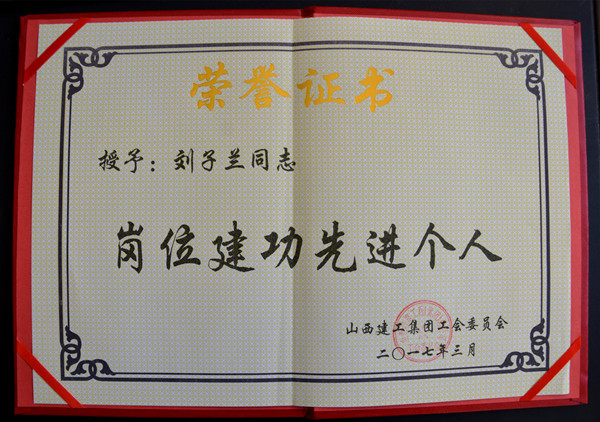 荣誉证书
授予：刘子兰同志
岗位建功先进个人
山西建工集团工会委员会
二〇一七年三月